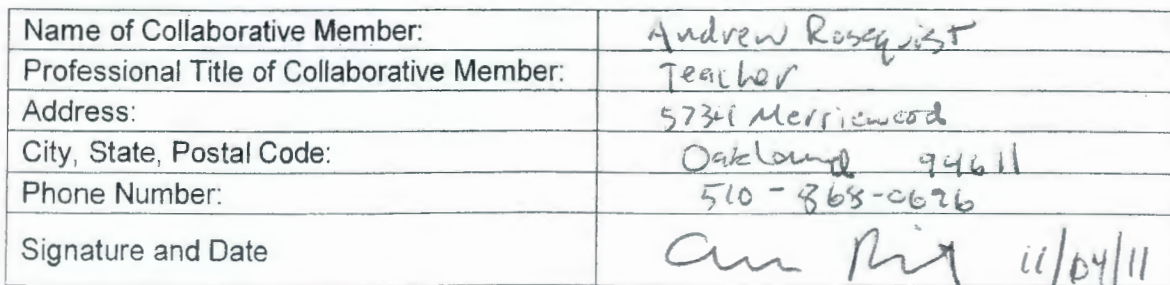 Name of Collaborative Member: Andrew Rosequist
Professional Title of Collaborative Member: Teacher
Address: 5734 Merriewood
City, State, Postal Code: Oakland 94611
Phone Number: 510-868-0696
Signature and Date 11/04/11